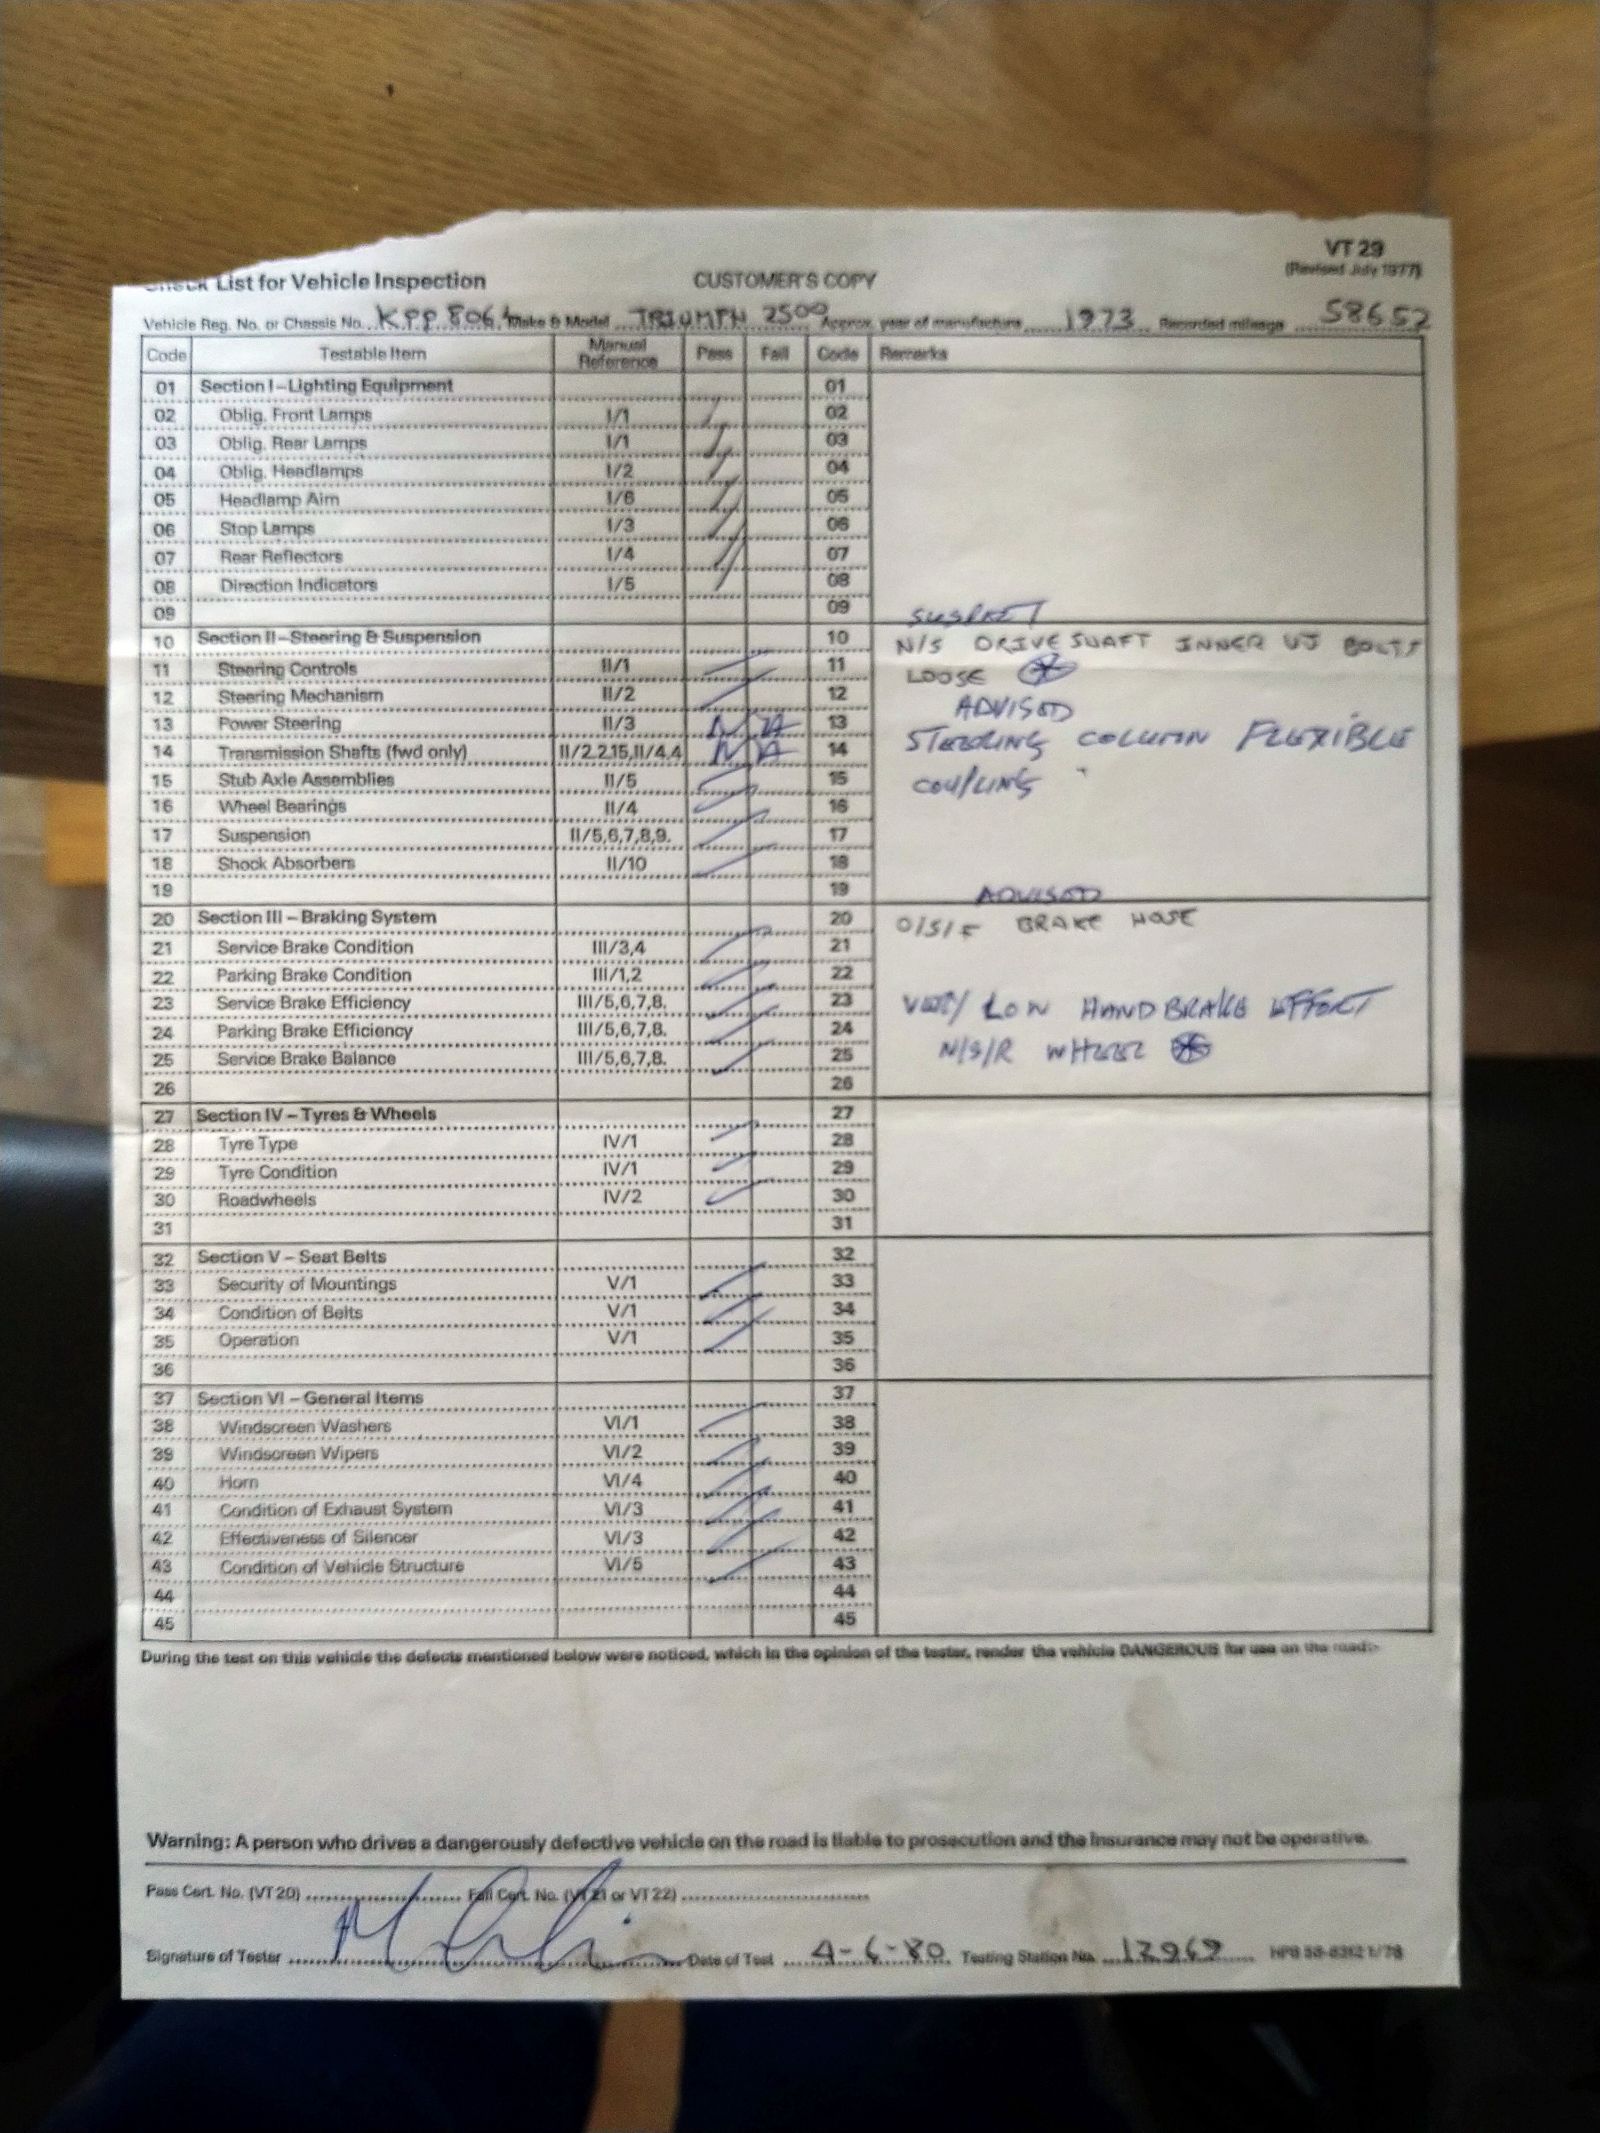 List for Vehicle Inspection CUSTOMER'S COPY VT 29
(Revised July 1977)
Vehicle Reg. No. or Chassis No. KPP 806 Make & Model TRIUMPH 2500 Approx. year of manufacture 1973 Recorded mileage 58652
Code Testable Item Manual Reference Pass Fail Code Remarks
01 Section I–Lighting Equipment 01
02 Oblig. Front Lamps I/1 02
03 Oblig. Rear Lamps I/1 03
04 Oblig. Headlamps I/2 04
05 Headlamp Aim I/6 05
06 Stop Lamps I/3 06
07 Rear Reflectors I/4 07
08 Direction Indicators I/5 08
09 09 SUSPECT
10 Section II–Steering & Suspension 10 N/S DRIVESHAFT INNER UJ BOLTS
11 Steering Controls II/1 11 LOOSE
12 Steering Mechanism II/2 12 ADVISED
13 Power Steering II/3 N A 13 STEERING COLUMN FLEXIBLE
14 Transmission Shafts (fwd only) II/2.2.15,II/4.4 N A 14
15 Stub Axle Assemblies II/5 15 COUPLING
16 Wheel Bearings II/4 16
17 Suspension II/5,6,7,8,9. 17
18 Shock Absorbers II/10 18
19 19 ADVISED
20 Section III – Braking System 20 O/S/F BRAKE HOSE
21 Service Brake Condition III/3,4 21
22 Parking Brake Condition III/1,2 22
23 Service Brake Efficiency III/5,6,7,8. 23 VERY LOW HANDBRAKE EFFORT
24 Parking Brake Efficiency III/5,6,7,8. 24
25 Service Brake Balance III/5,6,7,8. 25 N/S/R WHEEL
26 26
27 Section IV – Tyres & Wheels 27
28 Tyre Type IV/1 28
29 Tyre Condition IV/1 29
30 Roadwheels IV/2 30
31 31
32 Section V – Seat Belts 32
33 Security of Mountings V/1 33
34 Condition of Belts V/1 34
35 Operation V/1 35
36 36
37 Section VI – General Items 37
38 Windscreen Washers VI/1 38
39 Windscreen Wipers VI/2 39
40 Horn VI/4 40
41 Condition of Exhaust System VI/3 41
42 Effectiveness of Silencer VI/3 42
43 Condition of Vehicle Structure VI/5 43
44 44
45 45
During the test on this vehicle the defects mentioned below were noticed, which in the opinion of the tester, render the vehicle DANGEROUS for use on the road:-
Warning: A person who drives a dangerously defective vehicle on the road is liable to prosecution and the insurance may not be operative.
Pass Cert. No. (VT 20) Fail Cert. No. (VT 21 or VT 22)
Signature of Tester Date of Test 4-6-80 Testing Station No. 12969